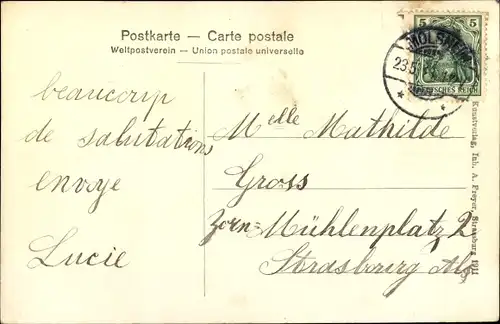 Postkarte – Carte postale
Weltpostverein – Union postale universelle
5 5
MOLSHEIM
23.5
DEUTSCHES REICH
beaucoup
de salutations
envoye
Lucie
Melle Mathilde
Gross
Zorn=Mühlenplatz 2
Strasbourg Als.
Kunstverlag, Inh. A. Freyer, Strassburg 1911